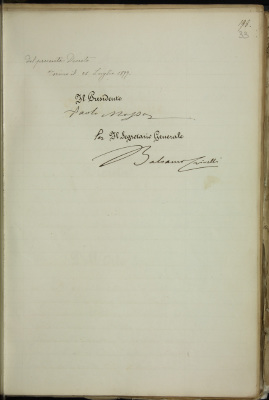 198.
33
del presente Decreto
Torino il 22 Luglio 1899.
Il Presidente
Paolo
Per Il Segretario Generale
Balsamo Crivelli